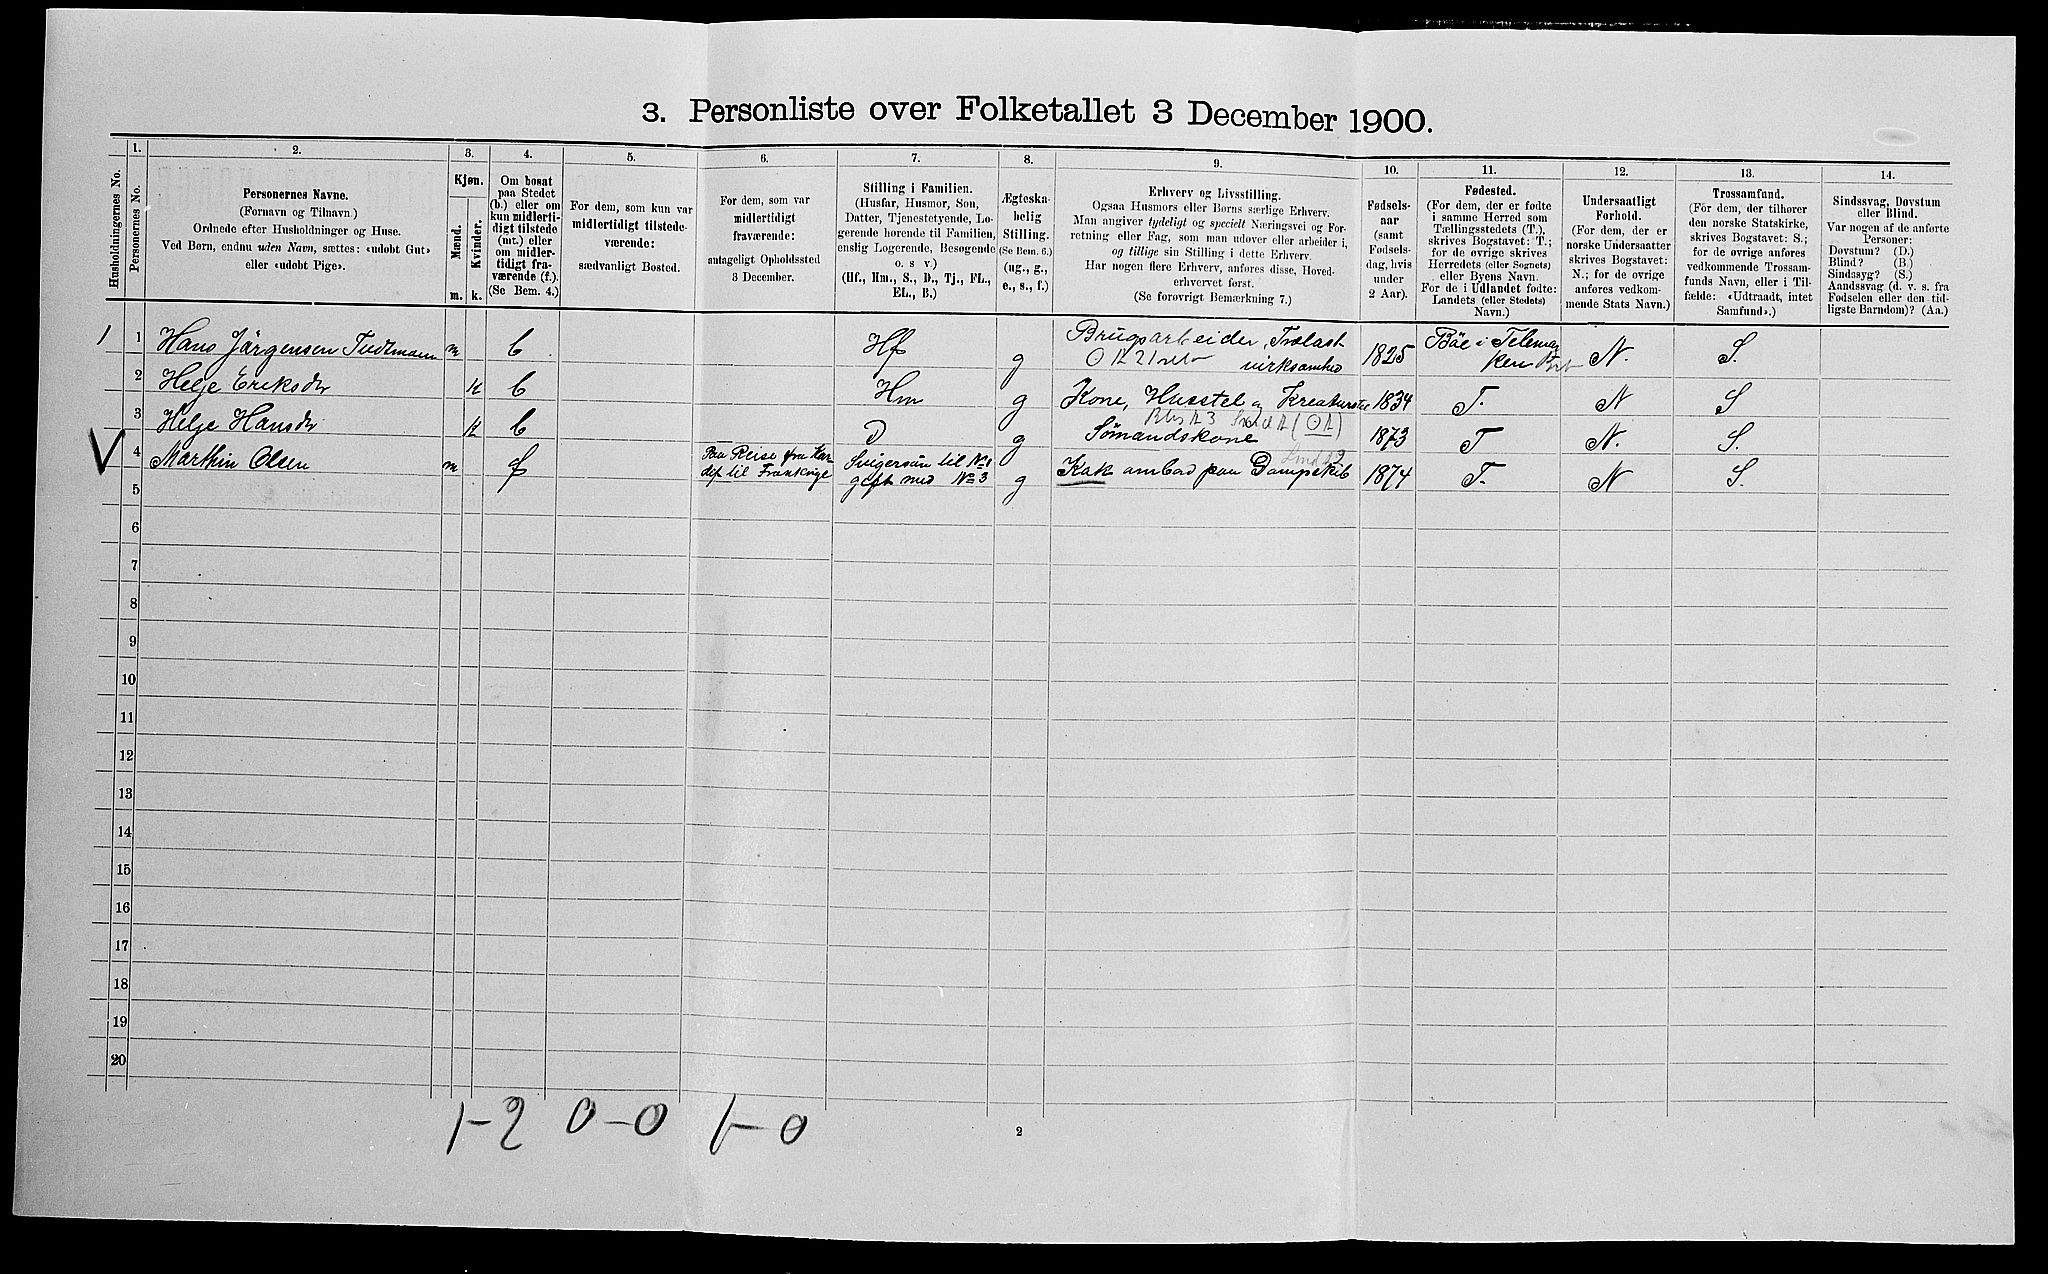 3. Personliste over Folketallet 3 December 1900.
1. 2. 3. 4. 5. 6. 7. 8. 9. 10. 11. 12. 13. 14.
Husholdningernes No.
Personernes No.
Personernes Navne.
(Fornavn og Tilnavn.)
Ordnede efter Husholdninger og Huse.
Ved Børn, endnu uden Navn, sættes: «udøbt Gut»
eller «udøbt Pige».
Kjøn.
Mænd.
Kvinder.
m. k.
Om bosat
paa Stedet
(b.) eller om
kun midlerti-
digt tilstede
(mt.) eller
om midler-
tidigt fra-
værende (f.).
(Se Bem. 4.)
For dem, som kun var
midlertidigt tilstede-
værende:
sædvanligt Bosted.
For dem, som var
midlertidigt
fraværende:
antageligt Opholdssted
3 December.
Stilling i Familien.
(Husfar, Husmor, Søn,
Datter, Tjenestetyende, Lo-
gerende hørende til Familien,
enslig Logerende, Besøgende
o. s v.)
(Hf., Hm., S., D., Tj., FL.,
EL., B.)
Ægteska-
belig
Stilling.
(Se Bem. 6.)
(ug., g.,
e., s., f.)
Erhverv og Livsstilling.
Ogsaa Husmors eller Børns særlige Erhverv.
Man angiver tydeligt og specielt Næringsvei og For-
retning eller Fag, som man udøver eller arbeider i,
og tillige sin Stilling i dette Erhverv.
Har nogen flere Erhverv, anføres disse, Hoved-
erhvervet først.
(Se forøvrigt Bemærkning 7.)
Fødsels-
aar
(samt
Fødsels-
dag, hvis
under
2 Aar).
Fødested.
(For dem, der er fødte
i samme Herred som
Tællingsstedets (T.),
skrives Bogstavet: T.;
for de øvrige skrives
Herredets (eller Sognets)
eller Byens Navn.
For de i Udlandet fødte:
Landets (eller Stedets)
Navn.)
Undersaatligt
Forhold.
(For dem, der er
norske Undersaatter
skrives Bogstavet:
N.; for de øvrige
anføres vedkom-
mende Stats Navn.)
Trossamfund.
(For dem, der tilhører
den norske Statskirke,
skrives Bogstavet: S.;
for de øvrige anføres
vedkommende Trossam-
funds Navn, eller i Til-
fælde: «Udtraadt, intet
Samfund».)
Sindssvag, Døvstum
eller Blind.
Var nogen af de anførte
Personer:
Døvstum? (D.)
Blind? (B.)
Sindssyg? (S.)
Aandssvag (d. v. s. fra
Fødselen eller den tid-
ligste Barndom)? (Aa.)
1 1 Hans Jørgensen m b Hf g Brugsarbeider, Trælast virksomhed 1825 Bøe i Telemarken N. S.
2 Helje Eriksdr k b Hm g Kone, Husstel og Kreaturstel 1834 T. N S
3 Helje Hansdr k b D g Sømandskone 1873 T N. S.
4 Marthin Olsen m f Paa Reise fra Kardif til Frankrige Svigersøn til No 1 gift med No 3 g Kok ombord paa Dampskib 1874 T. N S.
5
6
7
8
9
10
11
12
13
14
15
16
17
18
19
20
1-2 0-0 1-0
2